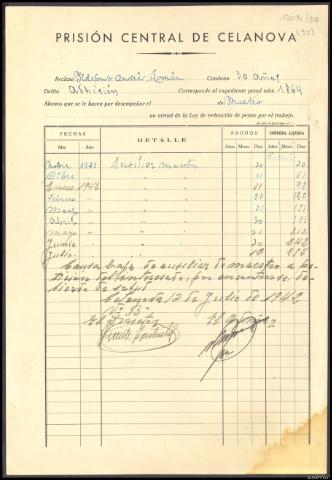 PRISIÓN CENTRAL DE CELANOVA
Recluso Ildefonso André Román Condena 30 Años
Delito Adhesión Corresponde al expediente penal núm. 1864
Abonos que se le hacen por desempeñar el de Maestro
en virtud de la Ley de redención de penas por el trabajo.
FECHAS DETALLE ABONOS CONDENA LIQUIDA
Mes Año Años Meses Días Años Meses Días
1941 Auxiliar maestro 30
Dicbre " " 31 61
Enero 1942 " 31 92
Febrero " " 28 120
Marzo " " 31 151
Abril " " 30 181
Mayo " " 31 212
Junio " " 30 242
Julio " " 12 254
Causa baja de auxiliar de maestro a
petición del interesado, por encontrarse
de salud
Celanova 12 de Julio de 1942
Vº Bº
El Director El